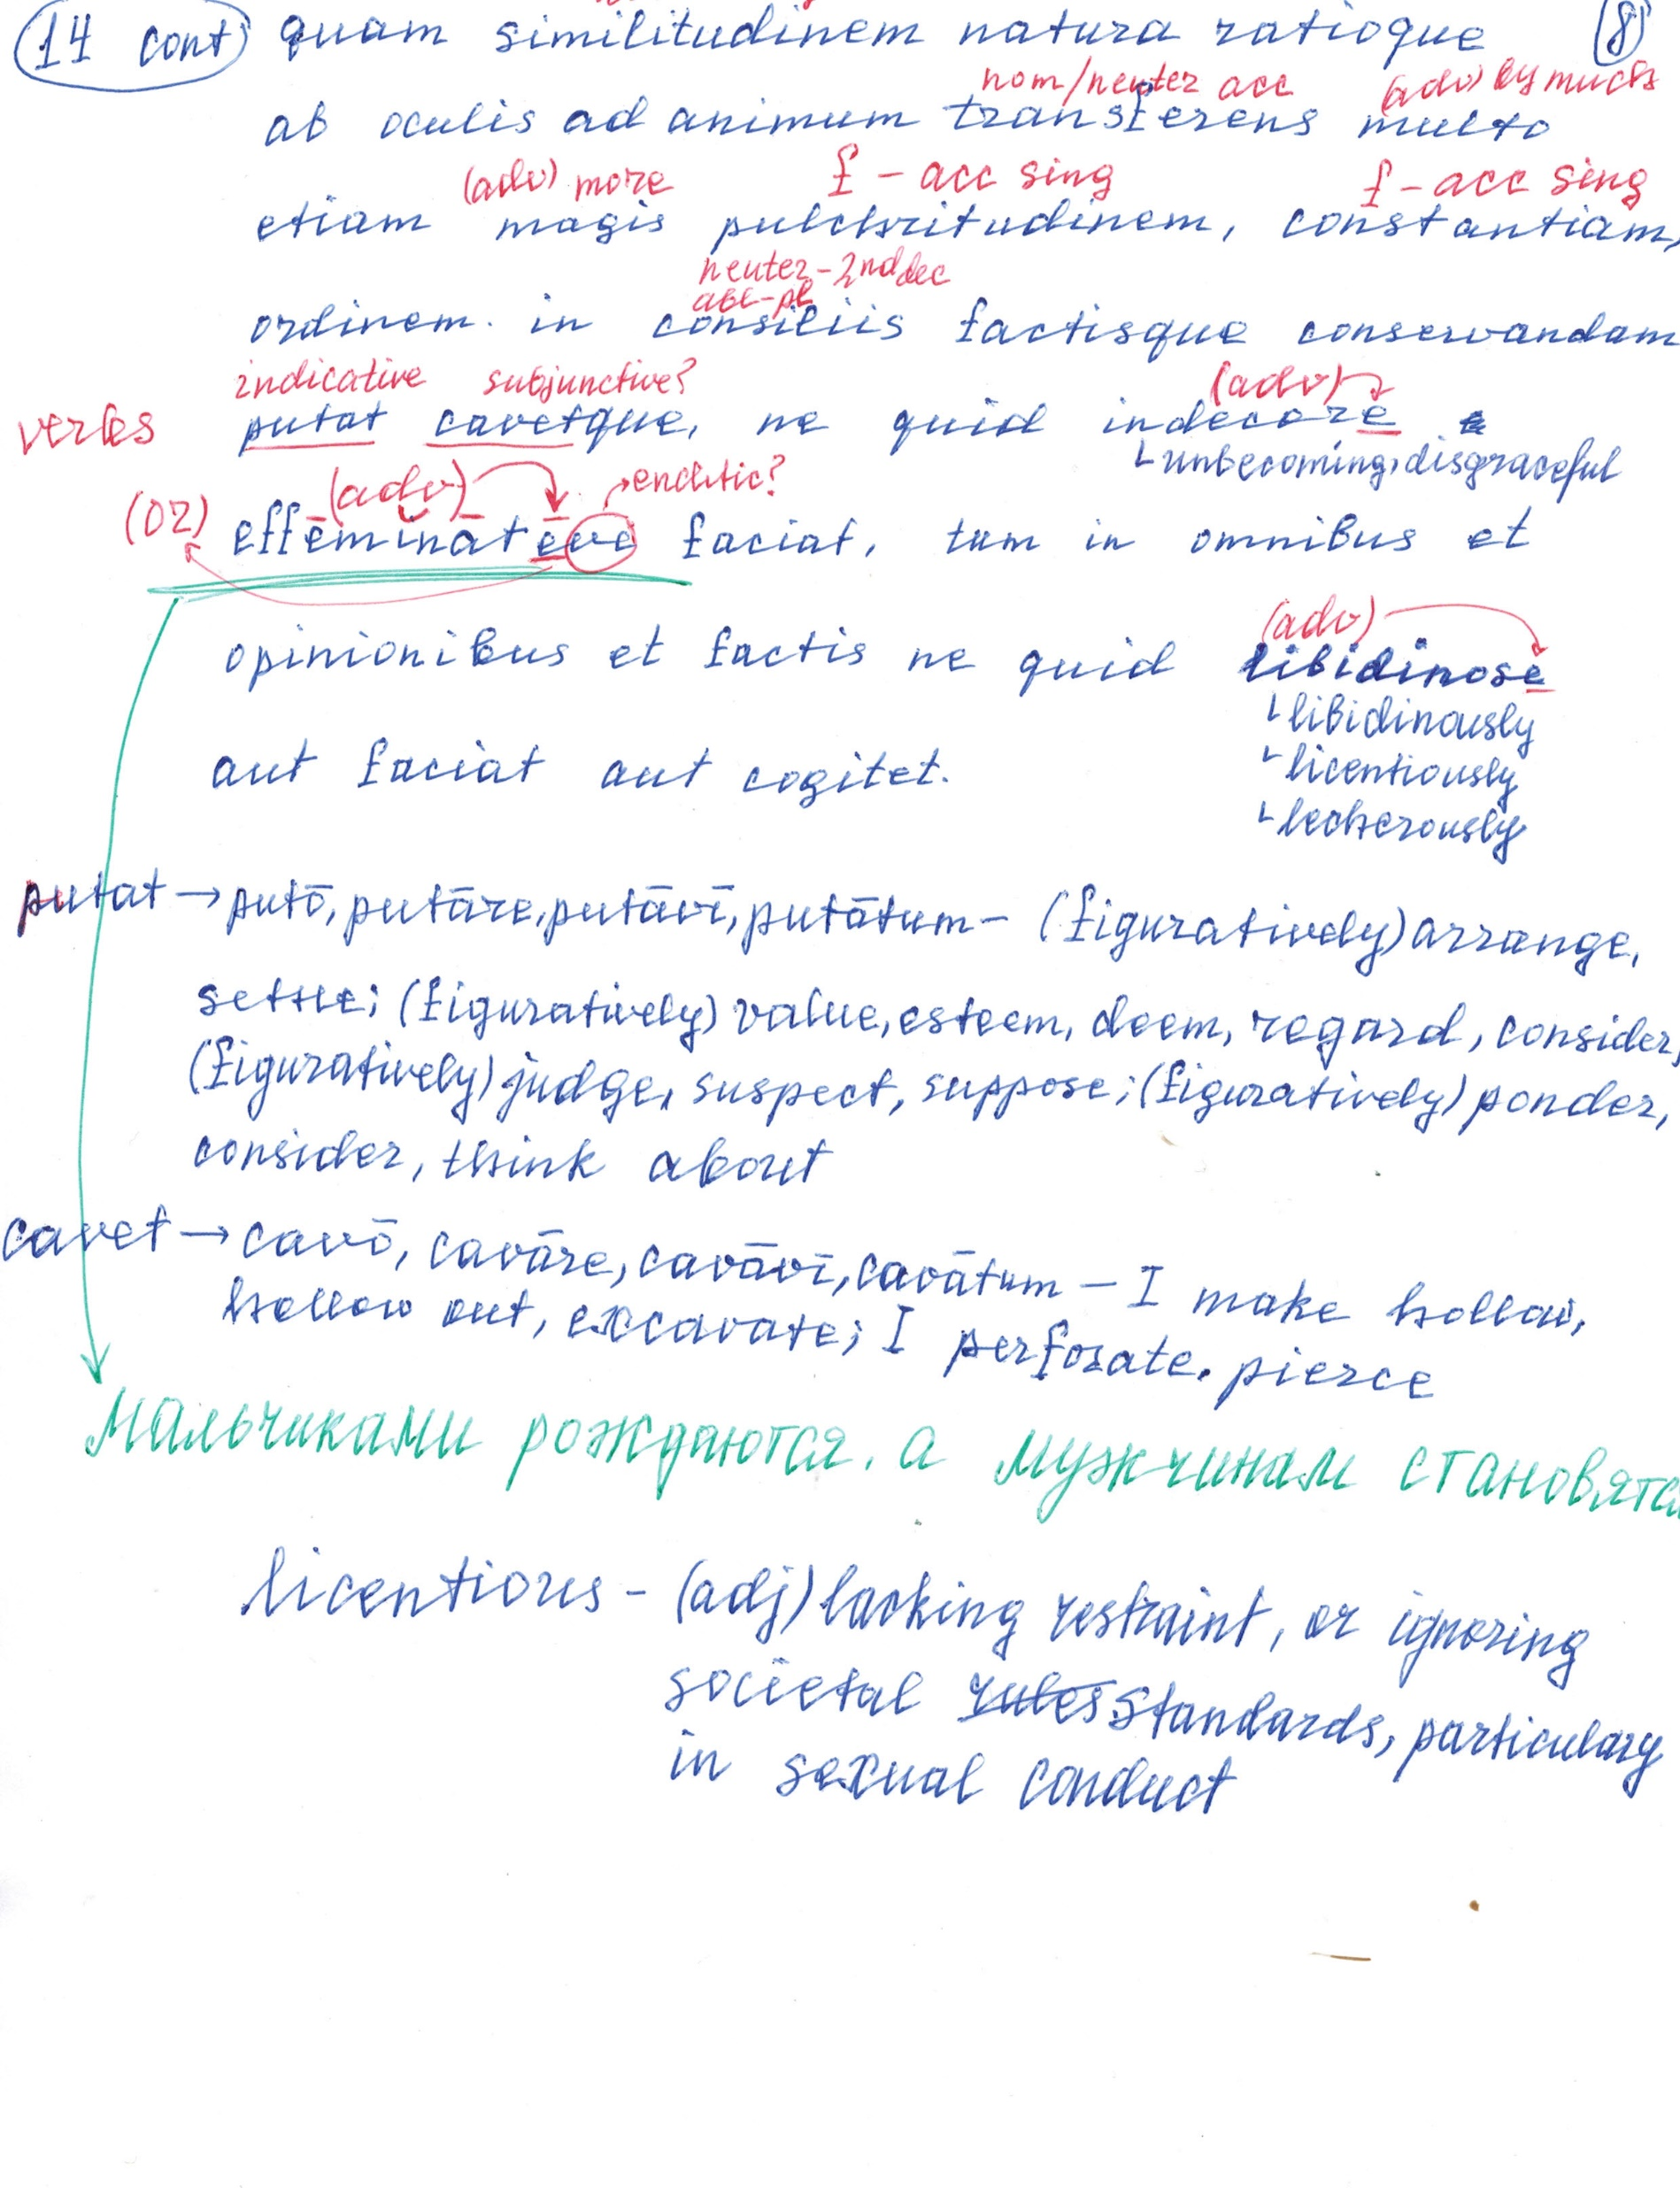 14 cont quam similitudinem natura ratioque 8
nom/neuter acc (adv) by much
ab oculis ad animum transferens multo
(adv) more f - acc sing f - acc sing
etiam magis pulchritudinem, constantiam,
neuter - 2nd dec
abl-pl
ordinem. in consiliis factisque conservandam
indicative subjunctive? (adv)
verbs putat cavetque, ne quid indecore
unbecoming, disgraceful
(adv) enclitic?
(or) effēminātēve faciat, tum in omnibus et
(adv)
opinionibus et factis ne quid libidinose
libidinously
aut faciat aut cogitet.
licentiously
lecherously
putat → putō, putāre, putāvī, putātum - (figuratively) arrange,
settle; (figuratively) value, esteem, deem, regard, consider,
(figuratively) judge, suspect, suppose; (figuratively) ponder,
consider, think about
cavet → cavō, cavāre, cavāvī, cavātum - I make hollow,
hollow out, excavate; I perforate. pierce
Мальчиками рождаются, а мужчинам становятся
licentious - (adj) lacking restraint, or ignoring
societal rules standards, particulary
in sexual conduct